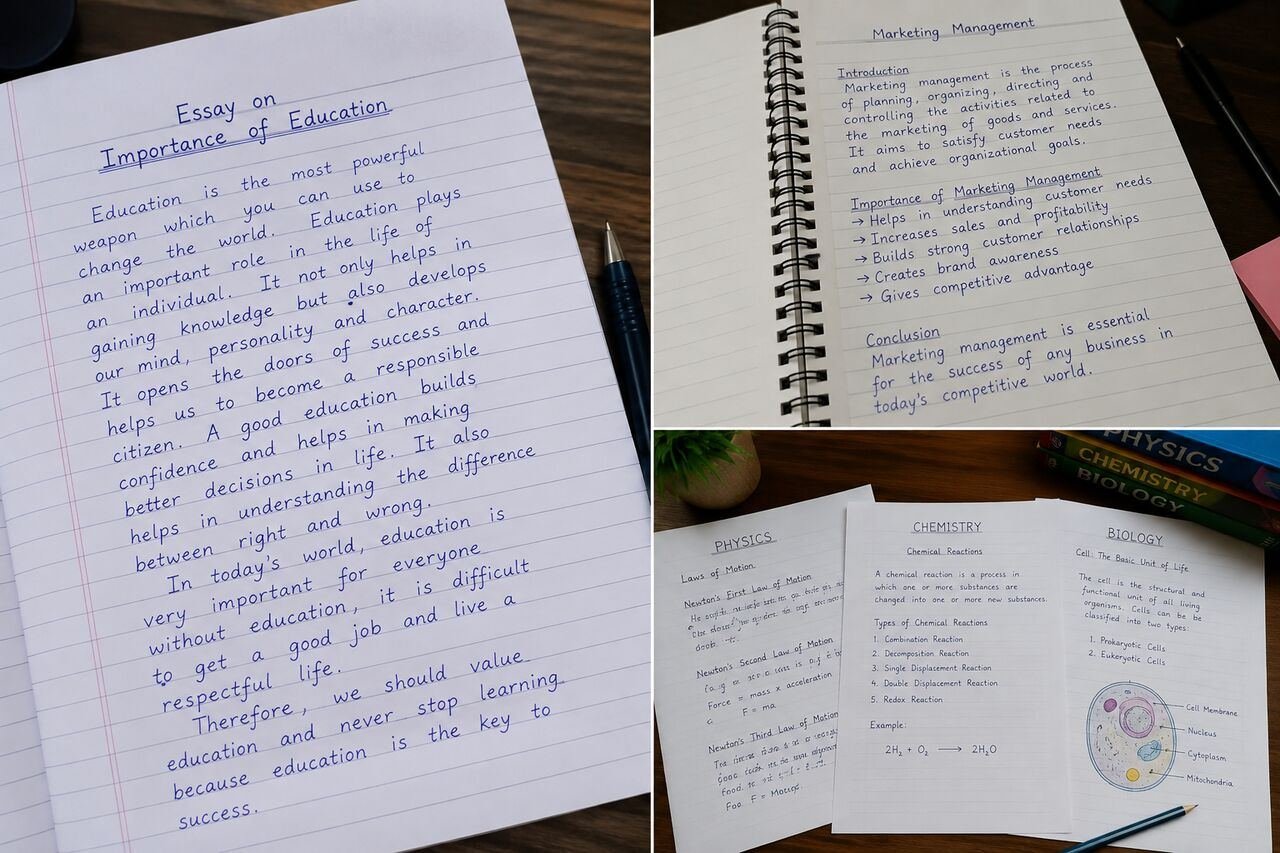 Essay on
Importance of Education
Education is the most powerful
weapon which you can use to
change the world. Education plays
an important role in the life of
an individual. It not only helps in
gaining knowledge but also develops
our mind, personality and character.
It opens the doors of success and
helps us to become a responsible
citizen. A good education builds
confidence and helps in making
better decisions in life. It also
helps in understanding the difference
between right and wrong.
In today's world, education is
very important for everyone
without education, it is difficult
to get a good job and live a
respectful life.
Therefore, we should value
education and never stop learning
because education is the key to
success.
Marketing Management
Introduction
Marketing management is the process
of planning, organizing, directing and
controlling the activities related to
the marketing of goods and services.
It aims to satisfy customer needs
and achieve organizational goals.
Importance of Marketing Management
→ Helps in understanding customer needs
→ Increases sales and profitability
→ Builds strong customer relationships
→ Creates brand awareness
→ Gives competitive advantage
Conclusion
Marketing management is essential
for the success of any business in
today's competitive world.
PHYSICS
CHEMISTRY
BIOLOGY
PHYSICS
Laws of Motion
Newton's First Law of Motion
Newton's Second Law of Motion
Force = mass x acceleration
F = ma
Newton's Third Law of Motion
CHEMISTRY
Chemical Reactions
A chemical reaction is a process in
which one or more substances are
changed into one or more new substances.
Types of Chemical Reactions
1. Combination Reaction
2. Decomposition Reaction
3. Single Displacement Reaction
4. Double Displacement Reaction
5. Redox Reaction
Example:
2H₂ + O₂ ⟶ 2H₂O
BIOLOGY
Cell: The Basic Unit of Life
The cell is the structural and
functional unit of all living
organisms. Cells can be be
classified into two types:
1. Prokaryotic Cells
2. Eukaryotic Cells
Cell Membrane
Nucleus
Cytoplasm
Mitochondria